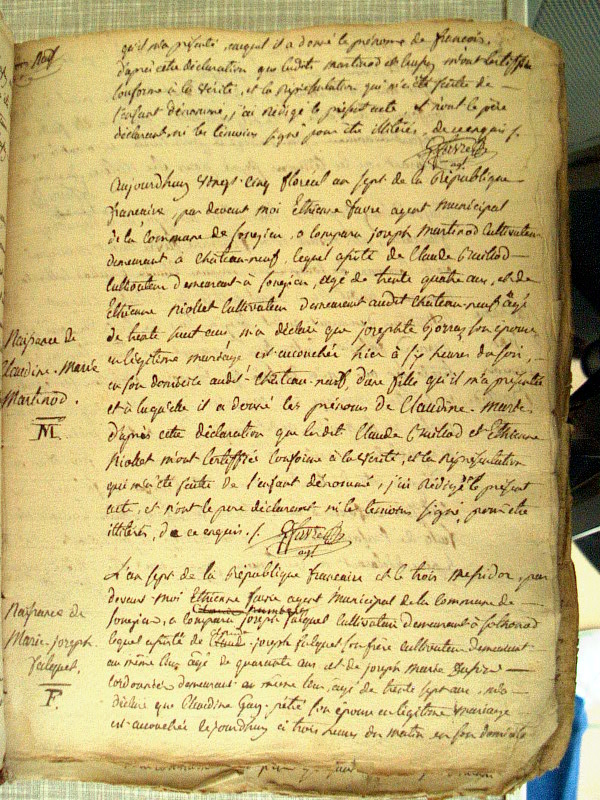 qu'il m'a présenté, auquel il a donné le prénoms de françois,
d'après cette déclaration que ledit martinod et m'ont certifié
conforme à la vérité, et la représentation qui m'a été faite de
l'enfant dénommé, j'ai rédigé le présent acte et n'ont le père
déclarant, ni les témoins signé pour être illitérés, de ce enquis ./.
favre
agt
Aujourdhuy vingt-cinq floreal an sept de la République
francaise par devant moi Ethienne favre agent municipal
de la Commune de Songieu, a comparu joseph Martinod Cultivateur
demeurant à Château-neuf, lequel assisté de Claude Cuillod
Cultivateur demeurant à Songieu, agé de trente quatre ans, et de
Ethienne Riollet Cultivateur demeurant audit Château-neuf âgé
de trente huit ans m'a déclaré que josephte son épouse
en légitime mariage est accouchée hier à six heures du soir,
en son domicile audit Château-neuf, d'une fille qu'il m'a présentée
et à laquelle il a donné les prénoms de Claudine-Marie
d'après cette déclaration que lesdit Claude Cuillod et Ethienne
Riollet m'ont certiffiée conforme à la vérité, et la représentation
qui m'a été faite de l'enfant dénommé, j'ai rédigé le présent
acte, et n'ont le pere déclarant ni les temoins signé, pour être
illitérés, de ce enquis ./. favre
agt
Naissance de
Claudine-Marie
Martinod.
M.
L'an sept de la République francaise et le trois messidor, par
devant moi Ethienne favre agent municipal de la commune de
Songieu, a comparu joseph fulquet Cultivateur demeurant à
lequel assisté de joseph fulquet son frère Cultivateur demeurant
au même lieu agé de quarante ans et de joseph marie
cordonnier demeurant au même lieu, agé de trente sept ans, m'a
déclaré que Claudine Gay son épouse en légitime mariage
est accouchée cejourdhuy à trois heures du matin en son domicile
Naissance de
Marie-joseph
fulquet.
F.